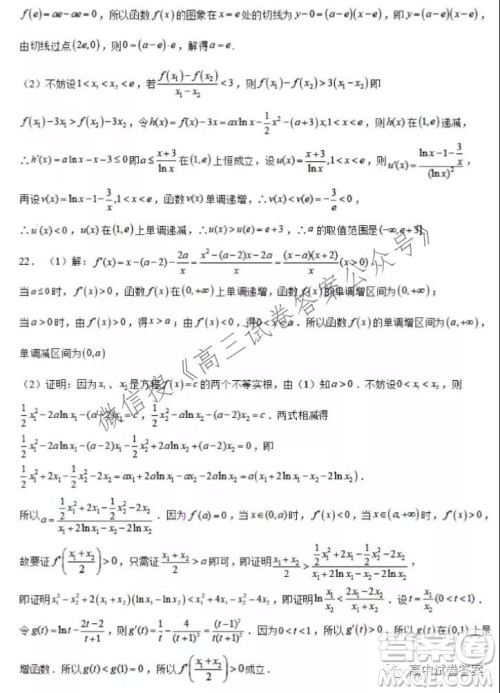 f(e)=ae−ae=0，所以函数 f(x) 的图象在 x=e 处的切线为 y−0=(a−e)(x−e)，即 y=(a−e)(x−e)，
由切线过点 (2e,0)，则 0=(a−e)·e，解得 a=e．
（2）不妨设 1<x₁<x₂<e，若 (f(x₁)−f(x₂))/(x₁−x₂)<3，则 f(x₁)−f(x₂)>3(x₁−x₂) 即
f(x₁)−3x₁>f(x₂)−3x₂，令 h(x)=f(x)−3x=axlnx−½x²−(a+3)x,1<x<e，则 h(x) 在 (1,e) 递减，
∴h′(x)=alnx−x−3≤0 即 a≤(x+3)/lnx 在 (1,e) 上恒成立，设 u(x)=(x+3)/lnx，则 u′(x)=(lnx−1−3/x)/(lnx)²，
再设 v(x)=lnx−1−3/x,1<x<e，函数 v(x) 单调递增，∴v(x)<v(e)=−3/e<0，
∴u′(x)<0，u(x) 在 (1,e) 上单调递减，∴u(x)>u(e)=e+3，∴a 的取值范围是 (−∞,e+3]
22．（1）解：f′(x)=x−(a−2)−2a/x=(x²−(a−2)x−2a)/x=(x−a)(x+2)/x(x>0)
当 a≤0 时，f′(x)>0，函数 f(x) 在 (0,+∞) 上单调递增，函数 f(x) 的单调增区间为 (0,+∞)；
当 a>0 时，由 f′(x)>0，得 x>a；由 f′(x)<0，得 0<x<a．所以函数 f(x) 的单调增区间为 (a,+∞)，
单调减区间为 (0,a)
（2）证明：因为 x₁、x₂ 是方程 f(x)=c 的两个不等实根，由（1）知 a>0．不妨设 0<x₁<x₂，则
½x₁²−2alnx₁−(a−2)x₁=c，½x₂²−2alnx₂−(a−2)x₂=c．两式相减得
½x₁²−2alnx₁−(a−2)x₁−½x₂²+2alnx₂+(a−2)x₂=0，即
½x₁²+2x₁−½x₂²−2x₂=ax₁+2alnx₁−ax₂−2alnx₂=a(x₁+2lnx₁−x₂−2lnx₂)．
所以 a=(½x₁²+2x₁−½x₂²−2x₂)/(x₁+2lnx₁−x₂−2lnx₂)．因为 f′(a)=0，当 x∈(0,a) 时，f′(x)<0，当 x∈(a,+∞) 时，f′(x)>0，
故要证 f′((x₁+x₂)/2)>0，只需证 (x₁+x₂)/2>a 即可，即证明 (x₁+x₂)/2>(½x₁²+2x₁−½x₂²−2x₂)/(x₁+2lnx₁−x₂−2lnx₂)，
即证明 x₁²−x₂²+2(x₁+x₂)(lnx₁−lnx₂)<x₁²+4x₁−x₂²−4x₂，即证明 ln(x₁/x₂)<(2x₁−2x₂)/(x₁+x₂)．设 t=x₁/x₂(0<t<1)．
令 g(t)=lnt−(2t−2)/(t+1)，则 g′(t)=1/t−4/(t+1)²=(t−1)²/(t(t+1)²)．因为 0<t<1，所以 g′(t)>0．所以 g(t) 在 (0,1) 上是
增函数．所以 g(t)<g(1)=0，所以 f′((x₁+x₂)/2)>0 成立．
微信搜《高三试卷答案公众号》
高中试卷答案